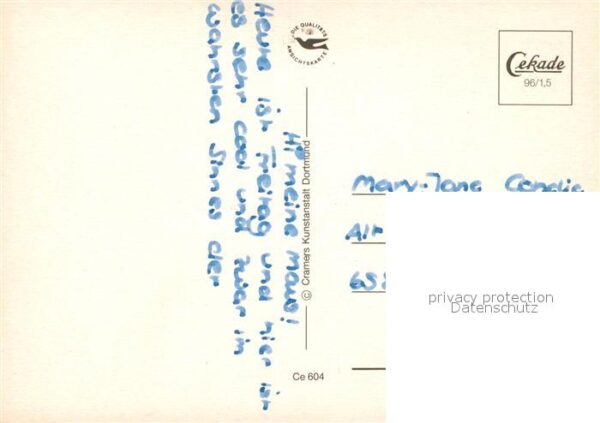 Hi meine maus!
Heute ist Freitag und hier ist
es sehr cool und zwar im
wahrsten Sinnes der
DIE QUALITÄTS
ANSICHTSKARTE
© Cramers Kunstanstalt Dortmund
Ce 604
Cekade
96/1,5
Mary-Jane
privacy protection
Datenschutz